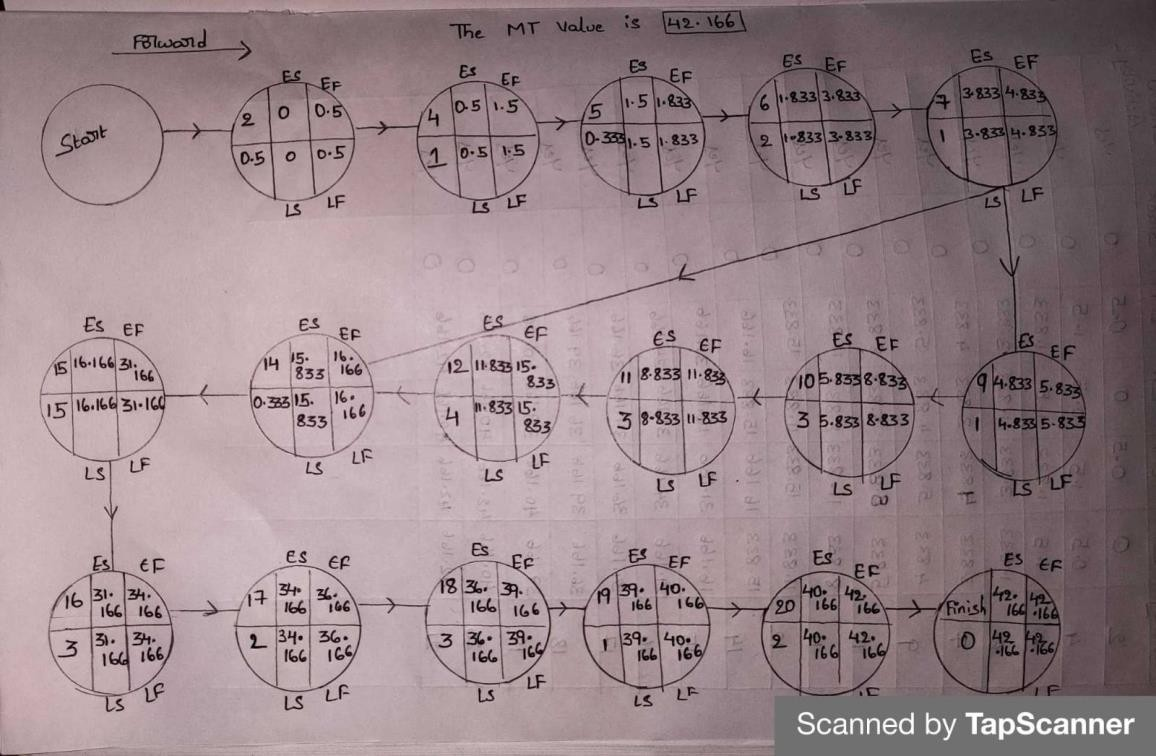 The MT Value is 42.166
Forward
Start
ES EF
2 0 0.5
0.5 0 0.5
LS LF
ES EF
4 0.5 1.5
1 0.5 1.5
LS LF
ES EF
5 1.5 1.833
0.333 1.5 1.833
LS LF
ES EF
6 1.833 3.833
2 1.833 3.833
LS LF
ES EF
7 3.833 4.833
1 3.833 4.833
LS LF
ES EF
15 16.166 31.166
15 16.166 31.166
LS LF
ES EF
14 15.833 16.166
0.333 15.833 16.166
LS LF
ES EF
12 11.833 15.833
4 11.833 15.833
LS LF
ES EF
11 8.833 11.833
3 8.833 11.833
LS LF
ES EF
10 5.833 8.833
3 5.833 8.833
LS LF
ES EF
9 4.833 5.833
1 4.833 5.833
LS LF
ES EF
16 31.166 34.166
3 31.166 34.166
LS LF
ES EF
17 34.166 36.166
2 34.166 36.166
LS LF
ES EF
18 36.166 39.166
3 36.166 39.166
LS LF
ES EF
19 39.166 40.166
1 39.166 40.166
LS LF
ES EF
20 40.166 42.166
2 40.166 42.166
LF
ES EF
Finish 42.166 42.166
0 42.166 42.166
LF
Scanned by TapScanner